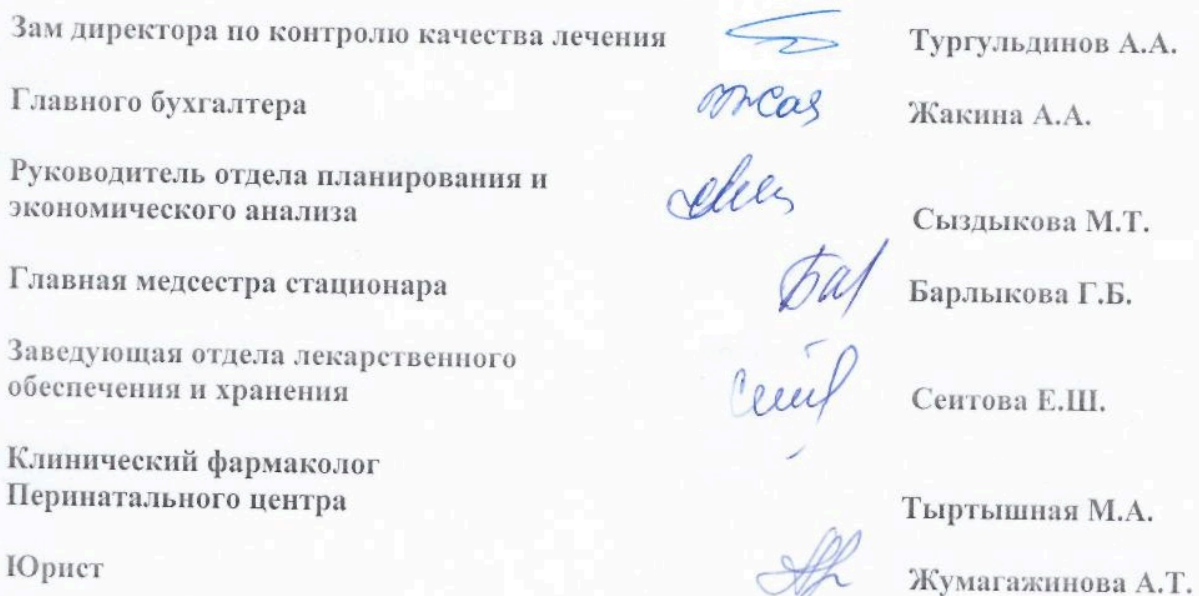 Зам директора по контролю качества лечения Тургульдинов А.А.
Главного бухгалтера Жакина А.А.
Руководитель отдела планирования и
экономического анализа Сыздыкова М.Т.
Главная медсестра стационара Барлыкова Г.Б.
Заведующая отдела лекарственного
обеспечения и хранения Сеитова Е.Ш.
Клинический фармаколог
Перинатального центра Тыртышная М.А.
Юрист Жумагажинова А.Т.